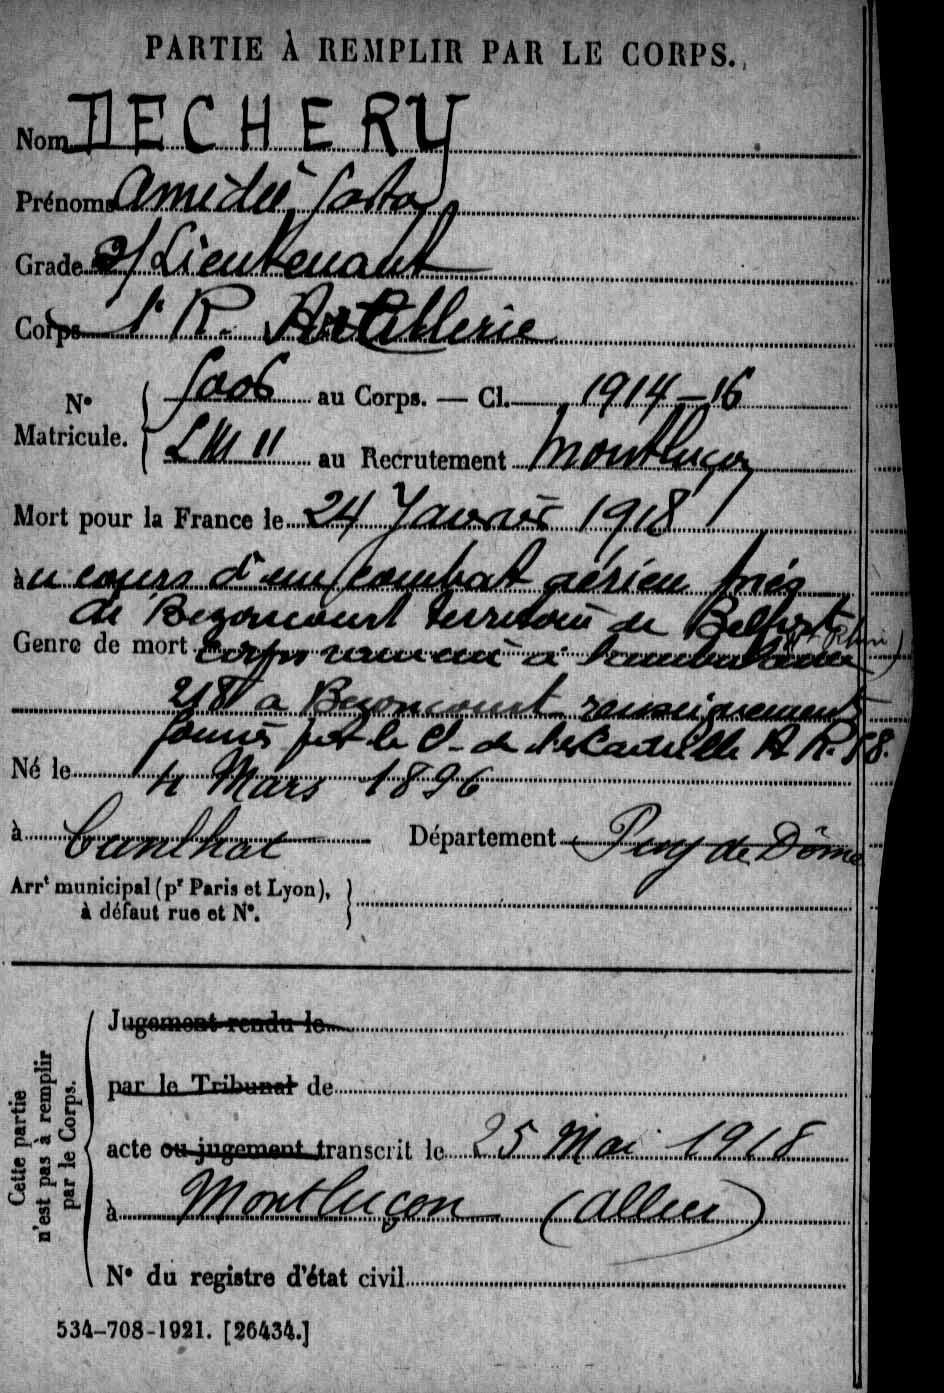 PARTIE À REMPLIR PAR LE CORPS.
Nom DECHERY
Prénoms Amédée
Grade S/Lieutenant
Corps 1r R. Artillerie
N° Matricule. 5006 au Corps. — Cl. 1914-16
LM 11 au Recrutement Montluçon
Mort pour la France le 24 Janvier 1918
au cours d'un combat aérien près
de Bezoncourt territoire de Belfort
(Ht Rhin)
Genre de mort corps ramené à
218 a Bezoncourt renseignements
fournis par le Ct de A R. 58.
Né le 4 Mars 1896
à Cunlhat Département Puy de Dôme
Arrt municipal (pr Paris et Lyon),
à défaut rue et N°.
Cette partie
n'est pas à remplir
par le Corps.
Jugement rendu le
par le Tribunal de
acte ou jugement transcrit le 25 Mai 1918
à Montluçon (Allier)
N° du registre d'état civil
534-708-1921. [26434.]